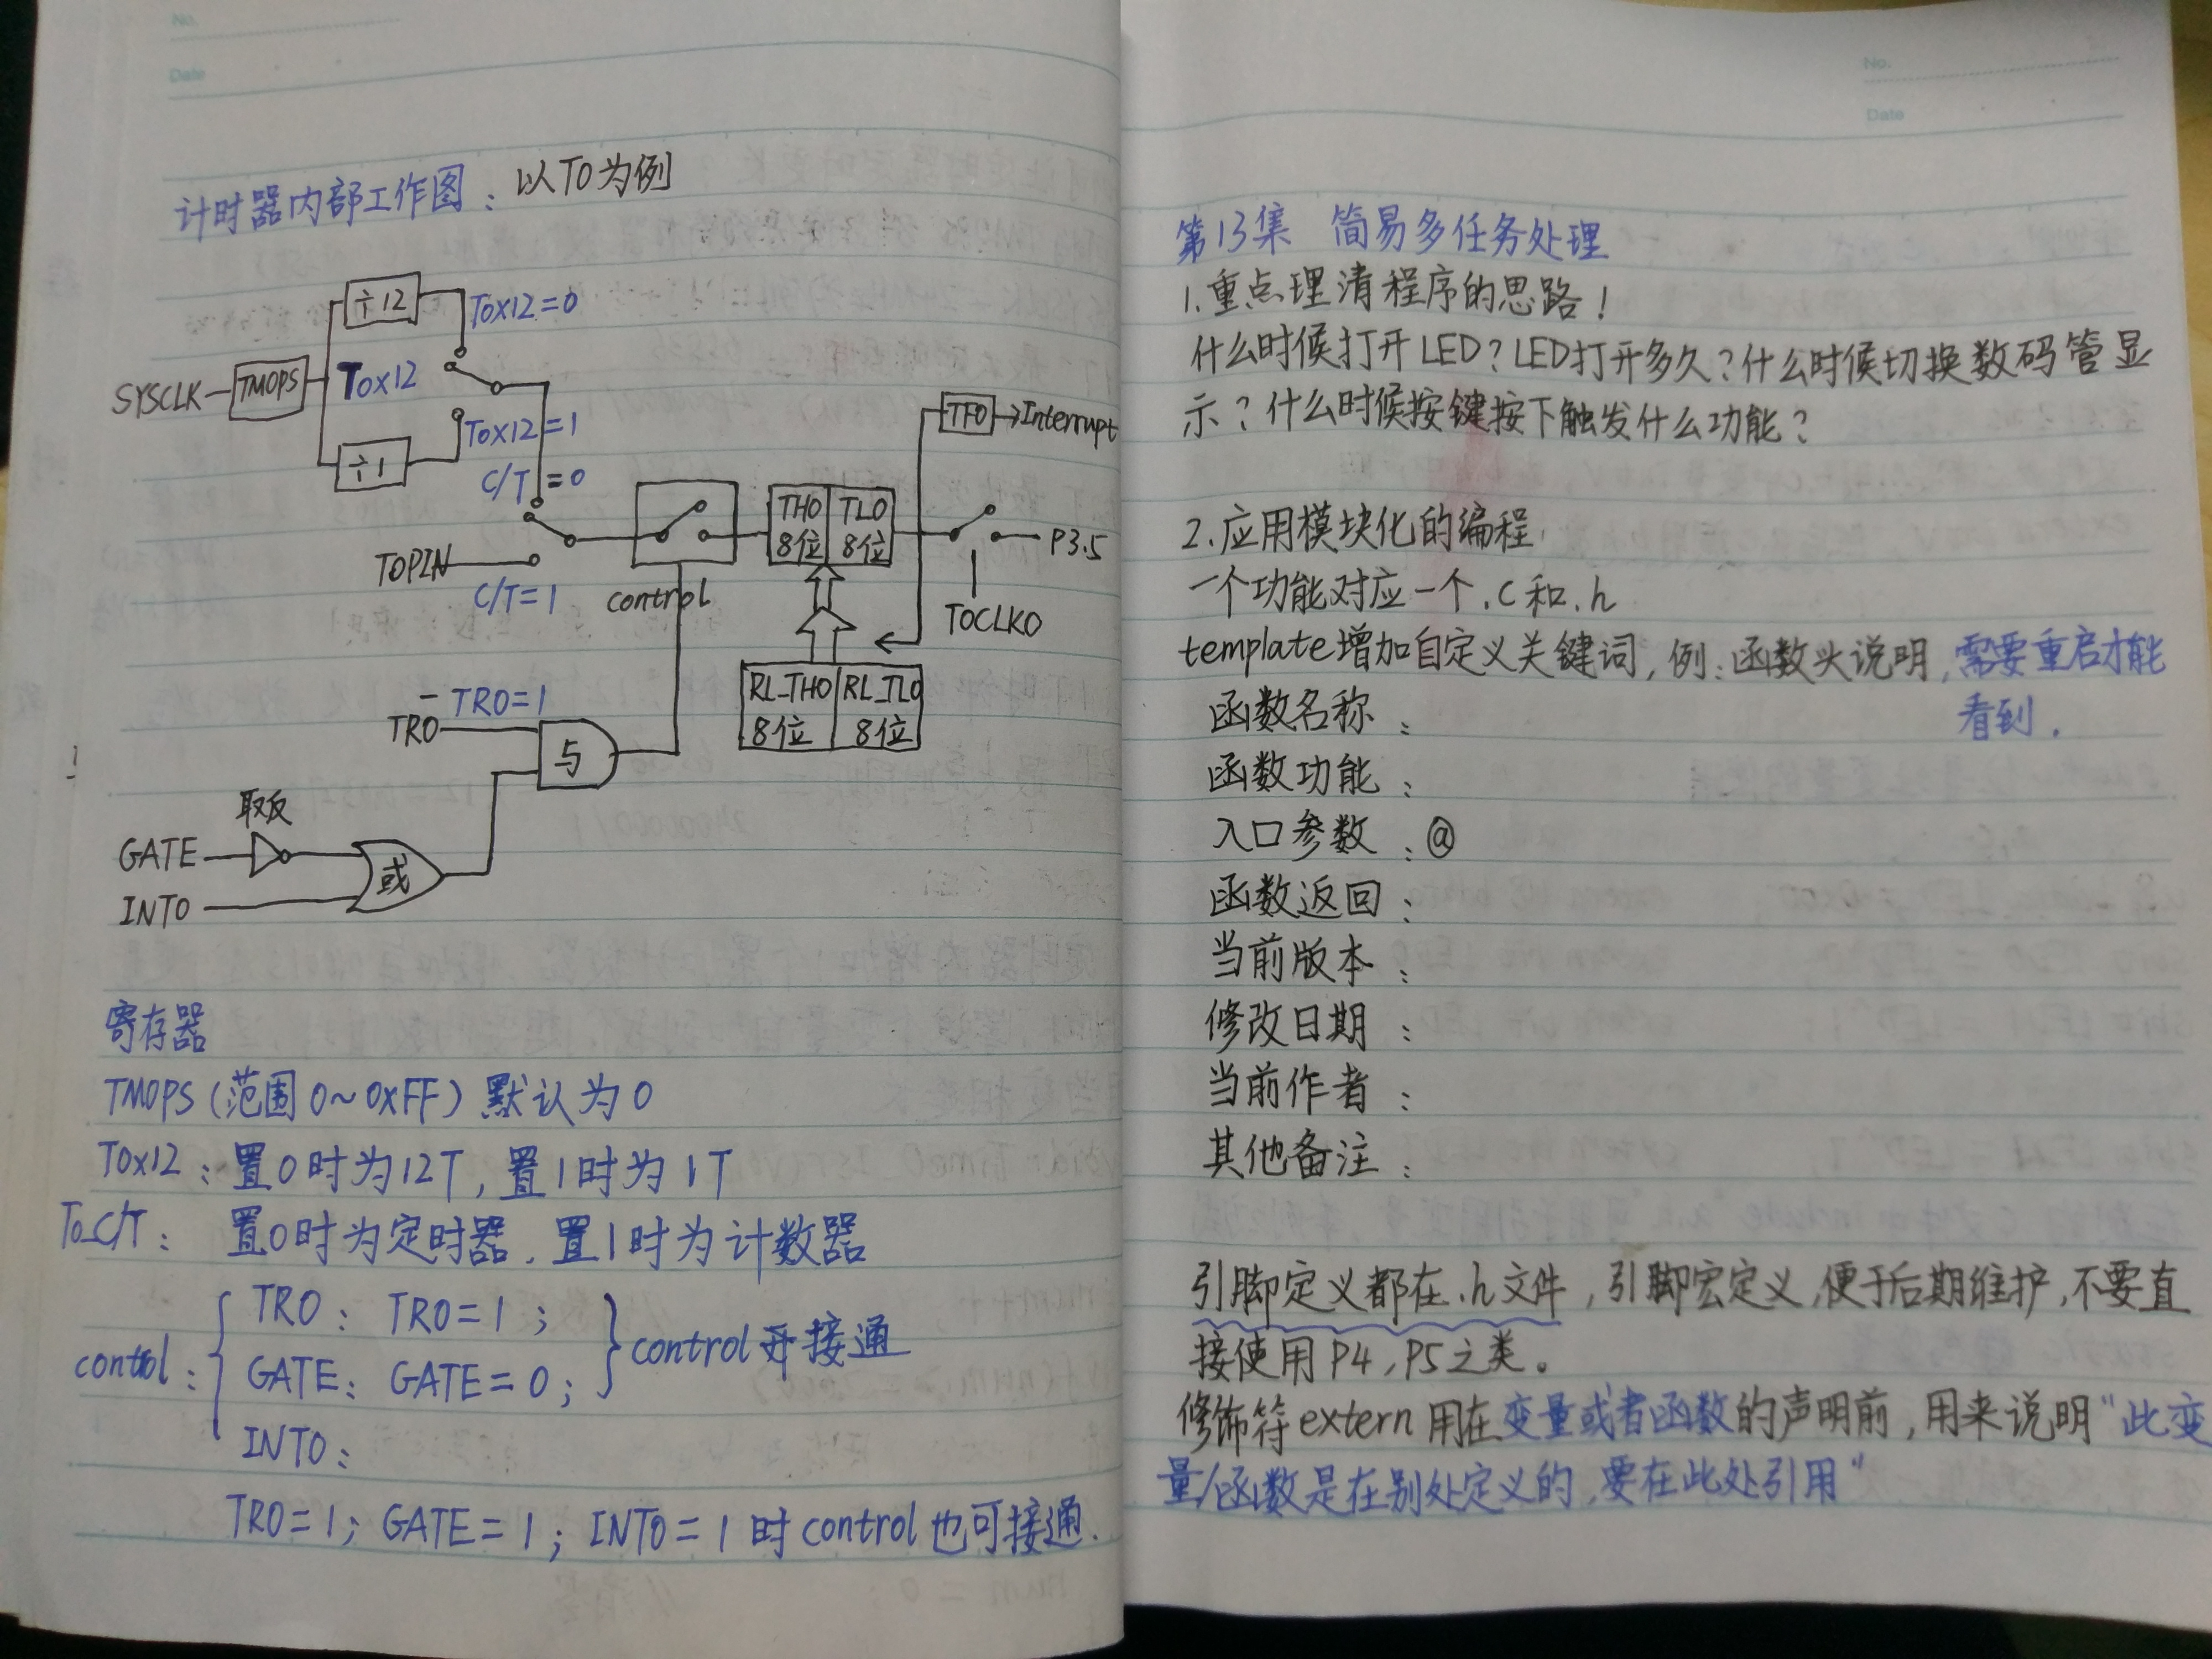 No.
Date
计时器内部工作图：以T0为例
÷12
T0x12=0
SYSCLK
TM0PS
T0x12
T0x12=1
÷1
C/T=0
TF0
Interrupt
TH0
8位
TL0
8位
P3.5
T0PIN
C/T=1
control
T0CLKO
RL_TH0
8位
RL_TL0
8位
TR0=1
TR0
与
取反
GATE
或
INT0
寄存器
TM0PS(范围0~0xFF)默认为0
T0x12：置0时为12T，置1时为1T
T0_C/T：置0时为定时器，置1时为计数器
control：
TR0：TR0=1；
GATE：GATE=0；
control 接通
INT0：
TR0=1；GATE=1；INT0=1时control也可接通.
No.
Date
第13集 简易多任务处理
1.重点理清程序的思路！
什么时候打开LED？LED打开多久？什么时候切换数码管显
示？什么时候按键按下触发什么功能？
2.应用模块化的编程
一个功能对应一个.c和.h
template增加自定义关键词，例：函数头说明，需要重启才能
看到.
函数名称：
函数功能：
入口参数：@
函数返回：
当前版本：
修改日期：
当前作者：
其他备注：
引脚定义都在.h文件，引脚宏定义，便于后期维护，不要直
接使用P4，P5之类。
修饰符extern用在变量或者函数的声明前，用来说明“此变
量/函数是在别处定义的，要在此处引用”